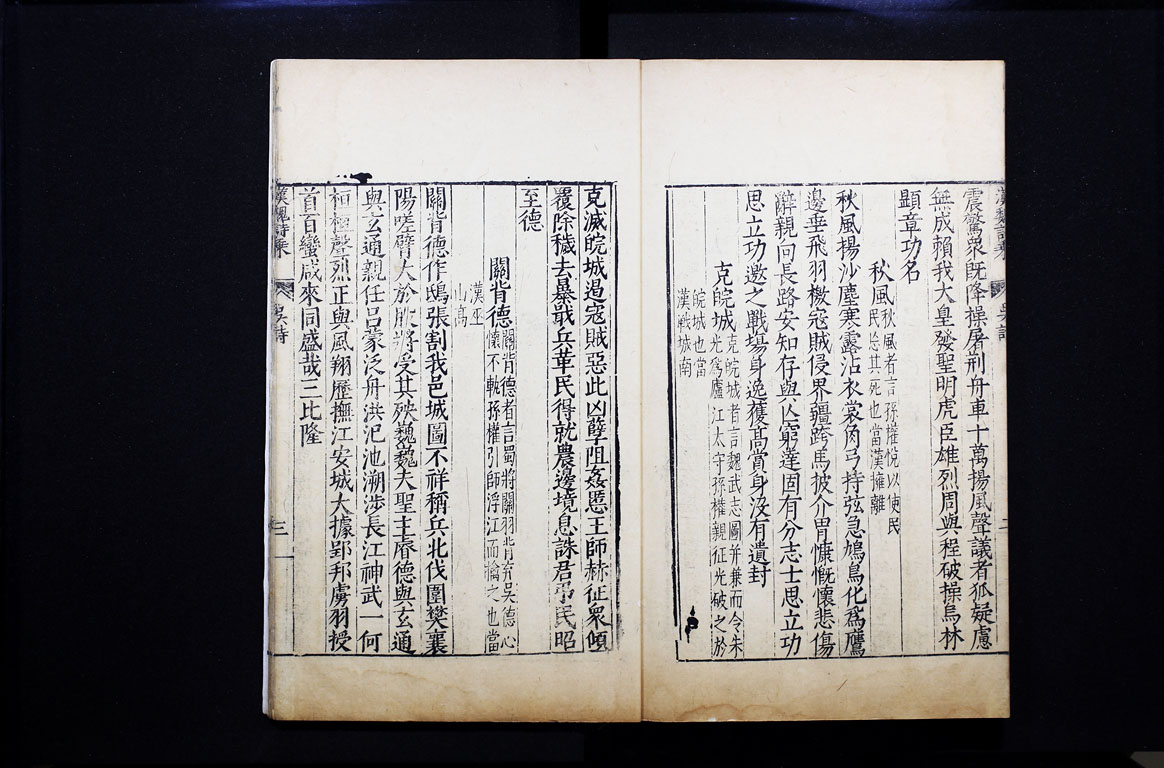 震驚眾既降操屠荊舟車十萬揚風聲議者狐疑慮
無成賴我大皇發聖明虎臣雄烈周與程破操烏林
顯章功名
秋風
秋風者言孫權悅以使民
民忘其死也當漢擁離
秋風揚沙塵寒露沾衣裳角弓持弦急鳩鳥化爲鷹
邊垂飛羽檄寇賊侵界疆跨馬披介冑慷慨懷悲傷
辭親向長路安知存與亾窮達固有分志士思立功
思立功邀之戰塲身逸獲髙賞身沒有遺封
克皖城
克皖城者言魏武志圖并兼而令朱
光爲廬江太守孫權親征光破之於
皖城也當
漢戰城南
克滅皖城遏寇賊惡此凶孽阻姦慝王師赫征衆傾
覆除穢去暴戢兵革民得就農邊境息誅君弔民昭
至德
關背德
關背德者言蜀將關羽背弃吳德心
懷不軌孫權引師浮江而擒之也當
漢巫
山高
關背德作鴟張割我邑城圖不祥稱兵北伐圍樊襄
陽嗟臂大於股將受其殃巍巍夫聖主睿德與玄通
與玄通親任呂蒙泛舟洪汜池溯涉長江神武一何
桓桓聲烈正與風翔歷撫江安城大據郢邦虜羽授
首百蠻咸來同盛哉三比隆
漢魏詩乘
吳詩
三